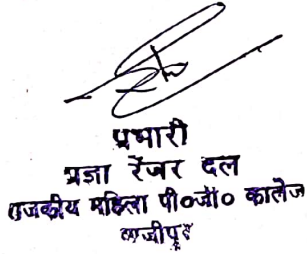 प्रभारी
प्रज्ञा रेंजर दल
राजकीय महिला पी०जी० कालेज
गाजीपुर